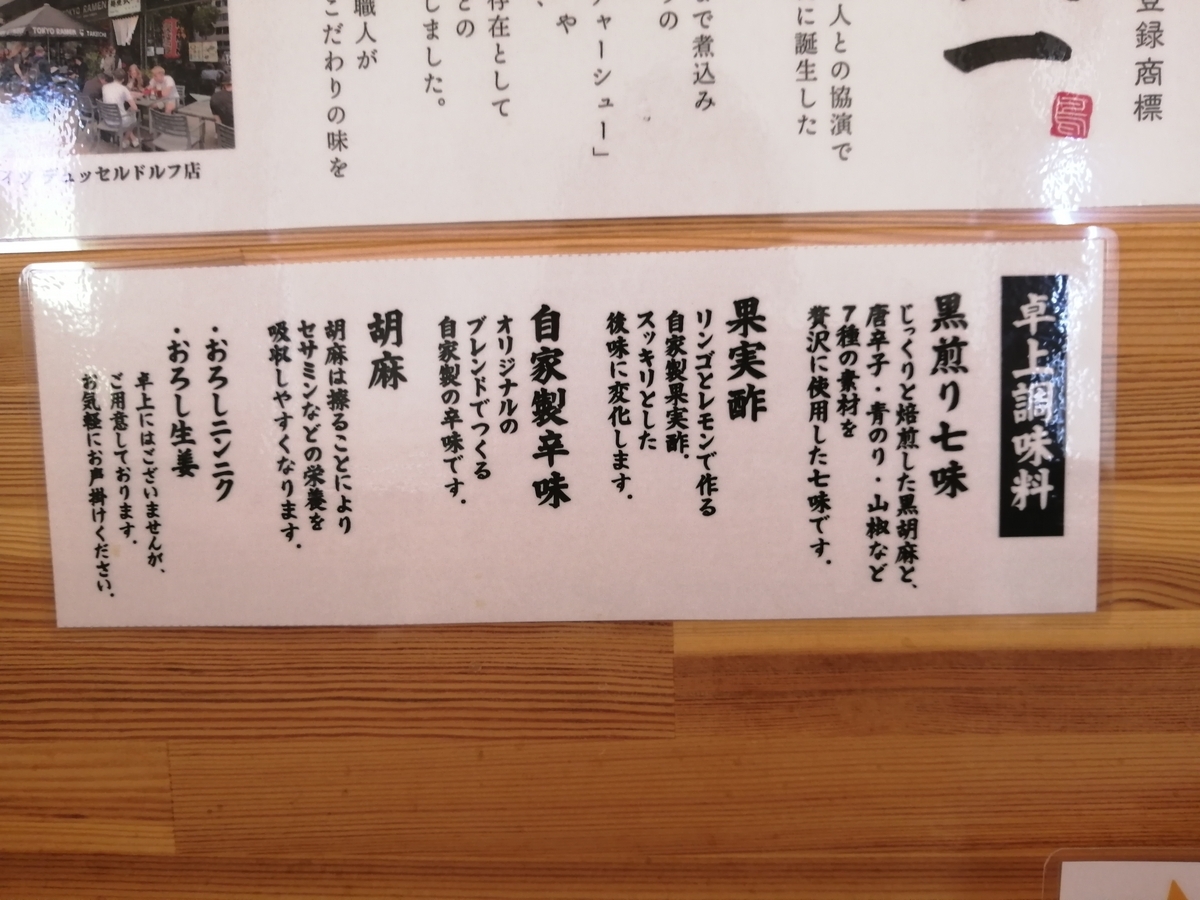 登録商標
一
人との協演で
に誕生した
まで煮込み
の
チャーシュー」
や
存在として
との
しました。
職人が
こだわりの味を
TOKYO RAMEN
デュッセルドルフ店
卓上調味料
黒煎り七味
じっくりと焙煎した黒胡麻と、
唐辛子・青のり・山椒など
7種の素材を
贅沢に使用した七味です。
果実酢
リンゴとレモンで作る
自家製果実酢。
スッキリとした
後味に変化します。
自家製辛味
オリジナルの
ブレンドでつくる
自家製の辛味です。
胡麻
胡麻は擦ることにより
セサミンなどの栄養を
吸収しやすくなります。
・おろしニンニク
・おろし生姜
卓上にはございませんが、
ご用意しております。
お気軽にお声掛けください。